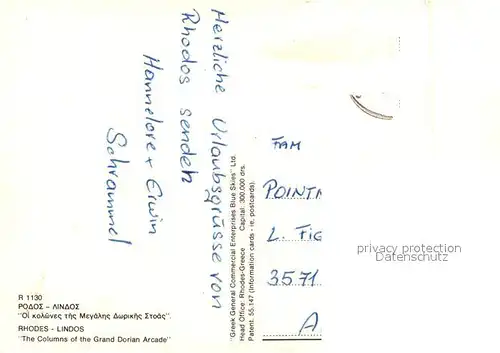 Herzliche Urlaubsgrüsse von
Rhodos senden
Hannelore + Erwin
Schrammel
"Greek General Commercial Enterprises Blue Skies" Ltd.
Head Office: Rhodes-Greece Capital: 300.000 drs.
Patent: 55.147 (Information cards - ie. postcards).
FAM
POINT
L. FIG
3571
A
privacy protection
Datenschutz
R 1130
ΡΟΔΟΣ - ΛΙΝΔΟΣ
"Οἱ κολῶνες τῆς Μεγάλης Δωρικῆς Στοᾶς".
RHODES - LINDOS
"The Columns of the Grand Dorian Arcade"